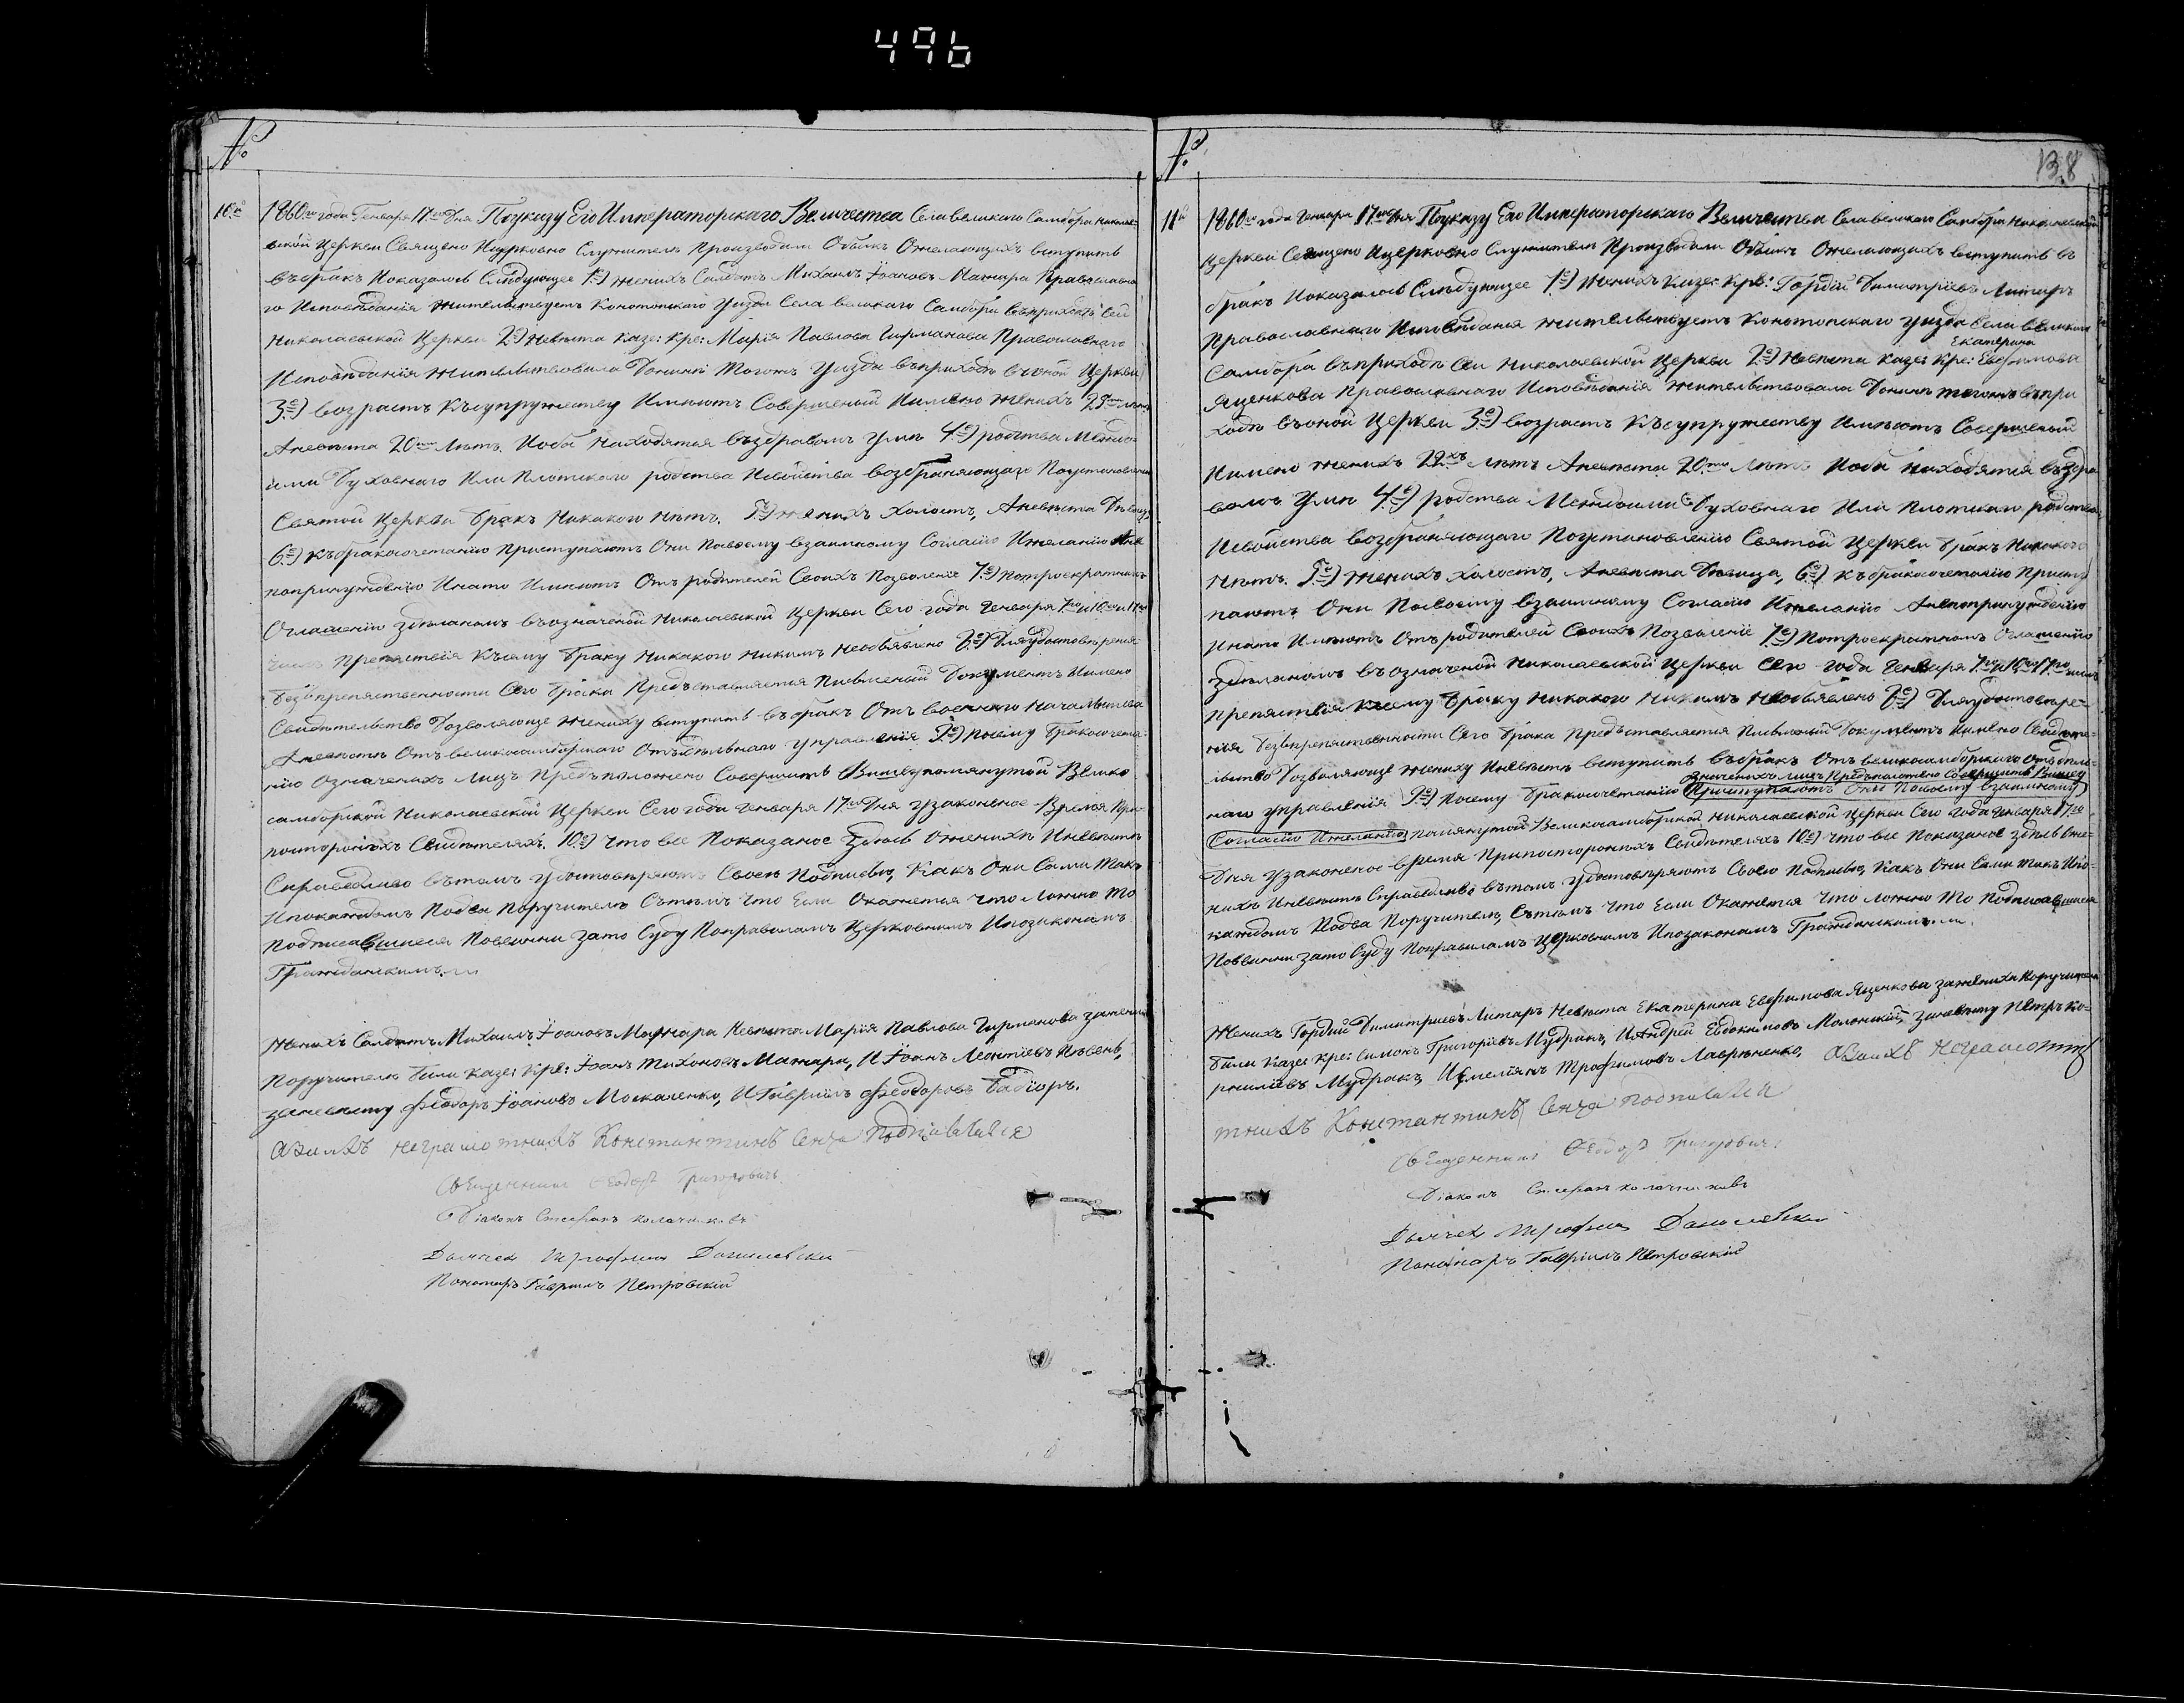 496
№
10й
1860го года Генваря 17го Дня По указу Его Императорскаго Величества Села великого Самбора Николае-
вской Церкви Священо Ицерковно Служители Производили Обыскъ Ожелающихъ вступить
въ бракъ Ипоказалось Слѣдующее 1е) женихъ Салдатъ Михаилъ Іоановъ Мажара Православна
го Исповѣданія жительствуетъ Конотопскаго Уизда Села великаго Самбора въприходѣ Сей
Николаевской Церкви 2е) Невѣста Казе: Кре: Марія Павлова Гирманова Православнаго
Исповѣданія жительствовала Донинѣ Тогожъ Уизда въприходѣ въоной Церкви
3е) возрастъ Ксъупружеству Имѣютъ Совершеный Имѣно женихъ
Аневѣста 20ти Лѣтъ. Иоба Находятся въздравомъ Умѣ 4е) родства Между
ими Духовнаго Или Плотскаго родства Исвойства возбраняющаго Поустановленію
Святой Церкви бракъ Никакого Нѣтъ. 5е) женихъ Холостъ, Аневѣста Дѣвица
6е) къбракосочетанію Приступаютъ Они Посвоему взаимному Согласію Ижеланію Ане
попринужденію Инато Имѣютъ Отъ родителей Своихъ Позволеніе 7е) Потроекратномъ
Оглашенію здѣланомъ въозначеной Николаевской Церкви Сего года Генваря
числъ Препятствія Къему браку Никакого Никимъ Необъявлено 8е) Дляудостовѣренія
безпрепятственности Сего брака Предъставляется Писменый Документъ Имѣно
Свидѣтельство Дозволяюще жениху вступить въбракъ Отъ военного Начальства
Аневѣстѣ Отъ великосамборскаго Отъдѣльнаго Управленія 9е) Посему бракосочета
нію Означенихъ лицъ Предъположено Совершить Вишеупомянутой Велико
самборской Николаевской Церкви Сего года Генваря 17го Дня Узаконеное Время При
посторонихъ Свидѣтеляхъ. 10е) Что все Показаное Здѣсь Оженихѣ Иневѣстѣ
Справедливо вътомъ удостовѣряютъ Своею Подписью, Какъ Они Сами Такъ
Ипокаждомъ Подва Поручителя Сътѣмъ Что Если Окажется Что Ложно То
Подписавшиеся Повинни зато Суду Поправиламъ Церковнымъ Ипозаконамъ
Гражданскимъ.
Женихъ Салдатъ Михаилъ Іоановъ Мажара Невѣста Марія Павлова Гирманова зажениха
Поручители били Казе: Кре: Іоанъ Тихоновъ Мажара, И Іоанъ Леонтіевъ Пѣвень,
заневѣсту Феодоръ Іоановъ Москаленко, И Гавріилъ Феодоровъ Бабіоръ.
азанихъ неграмотнихъ Константинъ Сенча Подписался
Священникъ Феодоръ Григоровичъ
Діаконъ Стефанъ
Дьячек Трофим Данилевски
Пономарь Гавриилъ Петровскій
№
138
11й
1860го года Генваря 17го Дня По указу Его Императорскаго Величества Села великаго Самбора Николаевской
Церкви Священо Ицерковно Служители Произвадили Обыскъ Ожелающихъ вступить въ
бракъ Ипоказалось Слѣдующее 1е) женихъ Казе: Кре: Гордій Димитріевъ Литаръ
Православнаго Исповѣданія жительствуетъ Конотопскаго Уизда Села великаго
Екатерина
Самбора въприходѣ Сей Николаевской Церкви 2е) Невѣста Казе: Кре: Евфимова
Яценкова Православнаго Исповѣданія жительствовала Донинѣ тогожъ въпри
ходѣ въоной Церкви 3е) возрастъ Ксъупружеству Имѣютъ Совершеный
Имѣно женихъ 22хъ Лѣтъ Аневѣста 20ти Лѣтъ Иоба Находятся въздра
вомъ Умѣ 4е) родства Междоими Духовнаго Или Плотскаго родства
Исвойства возбраняющаго Поустановленію Святой Церкви бракъ Никакого
Нѣтъ. 5е) женихъ холостъ, Аневѣста Дѣвица, 6е) къбракосочетанію Присту
паютъ Они Посвоему взаимному Согласію Ижеланію Анепопринужденію
Инато Имѣютъ Отъродителей Своихъ Позволеніе 7е) Потроекратномъ Оглашенію
Здѣланомъ въозначеной Николаевской Церкви Сего года Генваря
препятствія Къему браку Никакого Никимъ Необъявлено 8е) Дляудостовѣре-
нія безпрепятственности Сего брака Предъставляется Писменый Документъ Имѣно Свидѣте-
льство Дозволяюще жениху Иневѣстѣ вступить въбракъ Отъ великосамборскаго Отъдѣль-
значенихъ лицъ Предъположено Совершить Вишеу
наго управленія 9е) Посему бракосочетанію Приступаютъ Они Посвоему взаимному
Согласію Ижеланію помянутой Великосамборской Николаевской Церкви Сего года Генваря 17го
Дня Узаконеное время Припостороннихъ Свидѣтеляхъ 10е) Что все Показаное здѣсь Оже-
нихѣ Иневѣстѣ Справедливо вътомъ удостовѣряютъ Своею Подписью, Какъ Они Сами такъ Ипо-
каждомъ Подва Поручителя, Сътѣмъ Что Если Окажется Что ложно То Подписавшиеся
Повинни зато Суду Поправиламъ Церковнымъ Ипозаконамъ Гражданскимъ.
Женихъ Гордій Димитріевъ Литаръ Невѣста Екатерина Евфимова Яценкова зажениха Поручители
били Казе: Кре: Симонъ Григоріевъ Мудракъ, И Андрей Евдокимовъ Молонскій, заневѣсту Петръ Ко-
рнилиевъ Мудракъ, И Емеліянъ Трофимовъ Лавриненко, азанихъ неграмот
тнихъ Константинъ Сенча подписался
Священникъ Феодоръ Григоровичъ
Діаконъ Стефанъ
Дьячек Трофим Данилевски
Пономарь Гавриилъ Петровскій